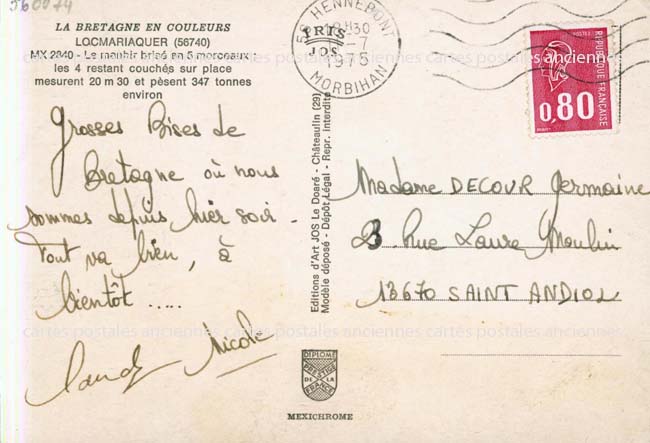 560074
LA BRETAGNE EN COULEURS
LOCMARIAQUER (56740)
MX 2840 - Le menhir brisé en 5 morceaux :
les 4 restant couchés sur place
mesurent 20 m 30 et pèsent 347 tonnes
environ
Grosses Bises de
Bretagne où nous
sommes depuis hier soir -
Tout va bien, à
bientôt .....
Nicole
Editions d'Art JOS Le Doaré - Châteaulin (29)
Modèle déposé - Dépôt Légal - Repr. interdite
IRIS
JOS
HENNEBONT
18H30
-7
1975
MORBIHAN
POSTES
REPUBLIQUE FRANÇAISE
0,80
Madame DECOUR Germaine
23 Rue Laure Moulin
13670 SAINT ANDIOL
cartes postales anciennes cartes postales anciennes cartes postales anciennes
DIPLOME
PRESTIGE
DE LA
FRANCE
MEXICHROME